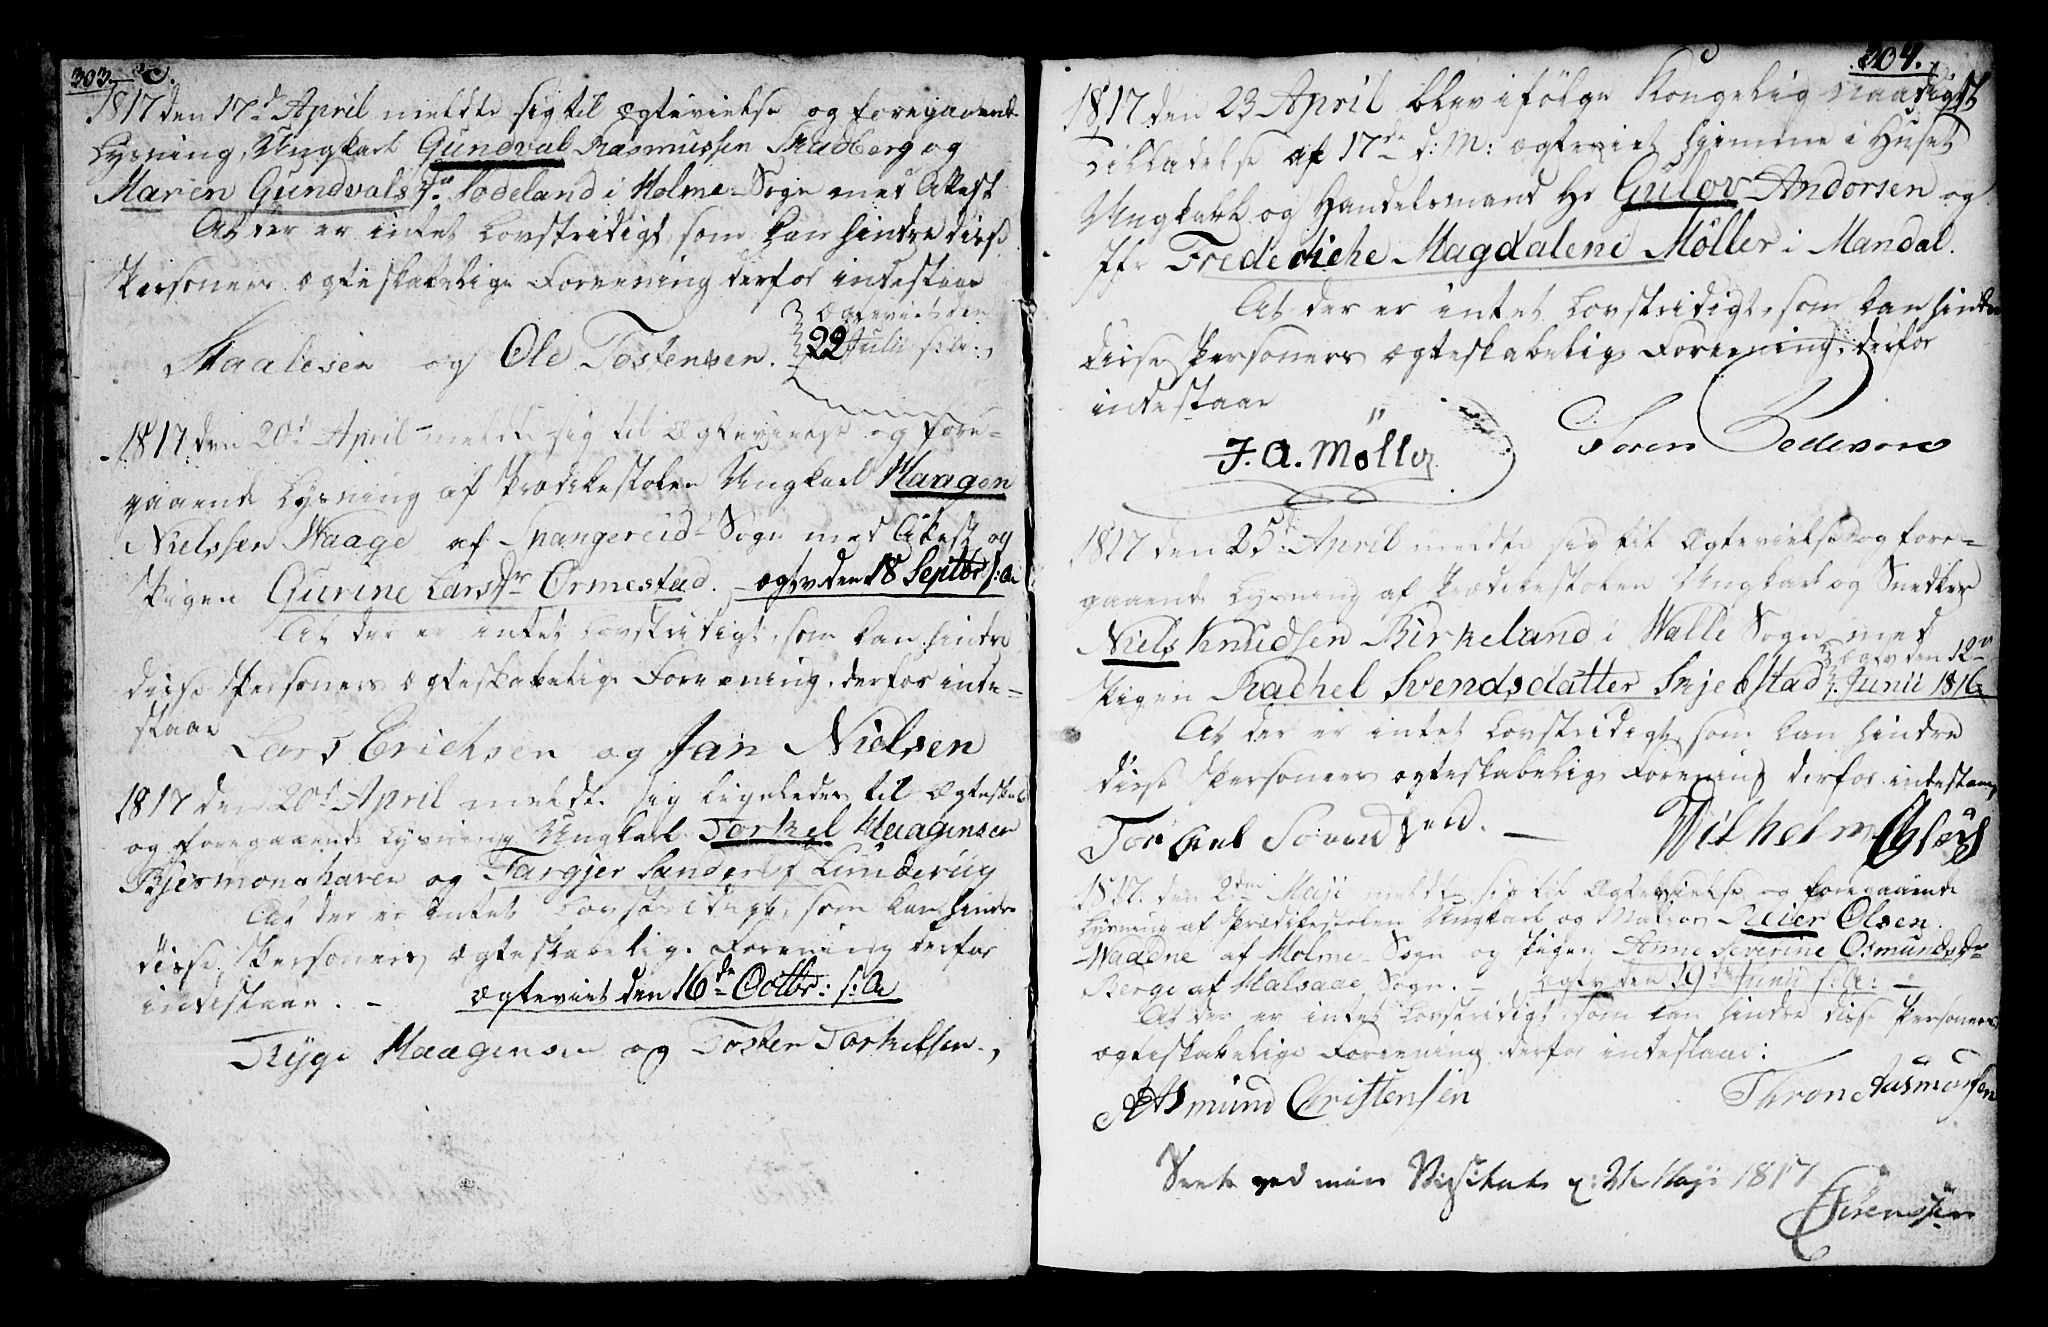 303.
1817 den 17d April meldte sig til Ægtevielse og foregaaende
Lysning, Ungkarl Gundval Rasmussen Stadberg og
Maren Gundvalsdr Sodeland i Holme-Sogn med Attest
At der er intet Lovstridigt, som kan hindre disse
Personers ægteskabelige Foreening derfor indestaae
Staalesen og Ole Tostensen.
Ægteviet den
22 Julii s: A:
1817 den 20d April meldte sig til Ægtevielse og fore-
gaaende Lysning af Prædikestolen Ungkarl Haagen
Nielssen Waage af Spangereid-Sogn med Attest og
Pigen Gurine Larsdr Ormestad. - ægtv den 18 Septbr s: A
At der er intet Lovstridigt, som kan hindre
disse Personers ægteskabelige Foreening, derfor inde-
staae
Lars Erichsen og Jan Nielsen
1817 den 20d April meldte sig ligeledes til Ægteskab
og foregaaende Lysning Ungkarl Torkel Haagensen
Bjermonshaven og Targjer Sandersd Lunderüg
At der er intet Lovstridigt, som kan hindre
disse Personers ægteskabelige Foreening derfor
indestaae. - Ægteviet den 16de Octbr: s: A
Tryge Haagensen og Tosten Torkelsen.
304.
1817 den 23 April blev ifølge Kongelig naadigst
Tilladelse af 17de d: M: ægteviet hjemme i Huset
Ungkarl og Handelsmand Hr Gulov Andorsen og
Jfr Frederiche Magdalene Möller i Mandal.
At der er intet Lovstridigt, som kan hindre
disse Personers ægteskabelige Foreening, derfor
indestaae
J. A. Møller Søren Pedersen
1817 den 25d April meldte sig til Ægtevielse og fore-
gaaende Lysning af Prædikestolen Ungkarl og Snedker
Niels Knudsen Birkeland i Walle Sogn med
Pigen Rachel Svendsdatter Skjebstad
Ægtv den 12te
Junii 1816
At der er intet Lovstridigt som kan hindre
disse Personers ægteskabelige Forening derfor indestaae
Torkel Sövendsen. - Wilhelm
1817. den 2den Maji meldte sig til Ægtevielse og foregaaende
Lysning af Prædikestolen Ungkarl og Matros Reier Olsen
Waadne af Holme-Sogn og Pigen Anne Severine Osmundsdr
Berge af Halsaae Sogn. - Ægtv den 19de Junii s: A: -
At der er intet Lovstridigt, som kan hindre disse Personers
ægteskabelige Foreening derfor indestaae:
Asmünd Christensen Thrond Rasmussen
Seet ved min Visitats d: 21 Maji 1817
Sörenssen